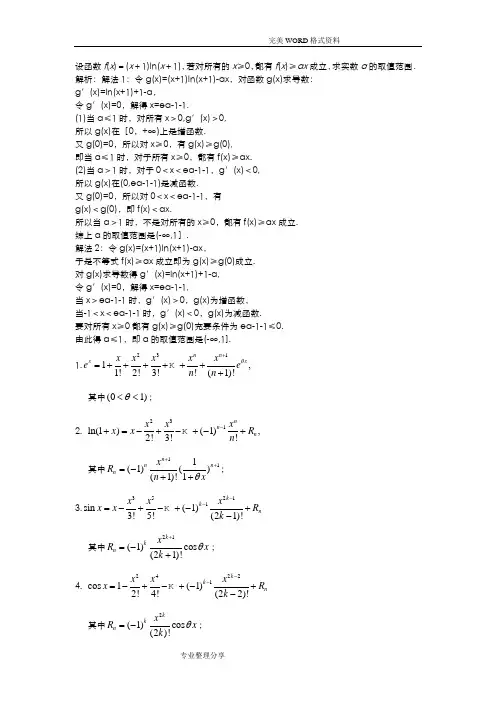 完美WORD格式资料
设函数f(x)=(x+1)ln(x+1),若对所有的x≥0,都有f(x)≥ax成立,求实数a的取值范围.
解析：解法1：令g(x)=(x+1)ln(x+1)-ax，对函数g(x)求导数：
g′(x)=ln(x+1)+1-a，
令g′(x)=0，解得x=ea-1-1.
(1)当a≤1时，对所有x＞0,g′(x)＞0,
所以g(x)在［0，+∞)上是增函数.
又g(0)=0，所以对x≥0，有g(x)≥g(0)，
即当a≤1时，对于所有x≥0，都有f(x)≥ax.
(2)当a＞1时，对于0＜x＜ea-1-1，g′(x)＜0,
所以g(x)在(0,ea-1-1)是减函数.
又g(0)=0，所以对0＜x＜ea-1-1，有
g(x)＜g(0)，即f(x)＜ax.
所以当a＞1时，不是对所有的x≥0，都有f(x)≥ax成立.
综上a的取值范围是(-∞,1］.
解法2：令g(x)=(x+1)ln(x+1)-ax，
于是不等式f(x)≥ax成立即为g(x)≥g(0)成立.
对g(x)求导数得g′(x)=ln(x+1)+1-a，
令g′(x)=0，解得x=ea-1-1,
当x＞ea-1-1时，g′(x)＞0，g(x)为增函数，
当-1＜x＜ea-1-1时，g′(x)＜0，g(x)为减函数.
要对所有x≥0都有g(x)≥g(0)充要条件为ea-1-1≤0.
由此得a≤1，即a的取值范围是(-∞,1].
1. e^x = 1 + x/1! + x^2/2! + x^3/3! + K + x^n/n! + x^{n+1}/(n+1)! e^{θx},
其中(0<θ<1)；
2. ln(1+x) = x - x^2/2! + x^3/3! - K + (-1)^{n-1} x^n/n! + R_n,
其中R_n = (-1)^n x^{n+1}/(n+1)! (1/(1+θx))^{n+1}；
3. sin x = x - x^3/3! + x^5/5! - K + (-1)^{k-1} x^{2k-1}/(2k-1)! + R_n
其中R_n = (-1)^k x^{2k+1}/(2k+1)! cosθx；
4. cos x = 1 - x^2/2! + x^4/4! - K + (-1)^{k-1} x^{2k-2}/(2k-2)! + R_n
其中R_n = (-1)^k x^{2k}/(2k)! cosθx；
专业整理分享